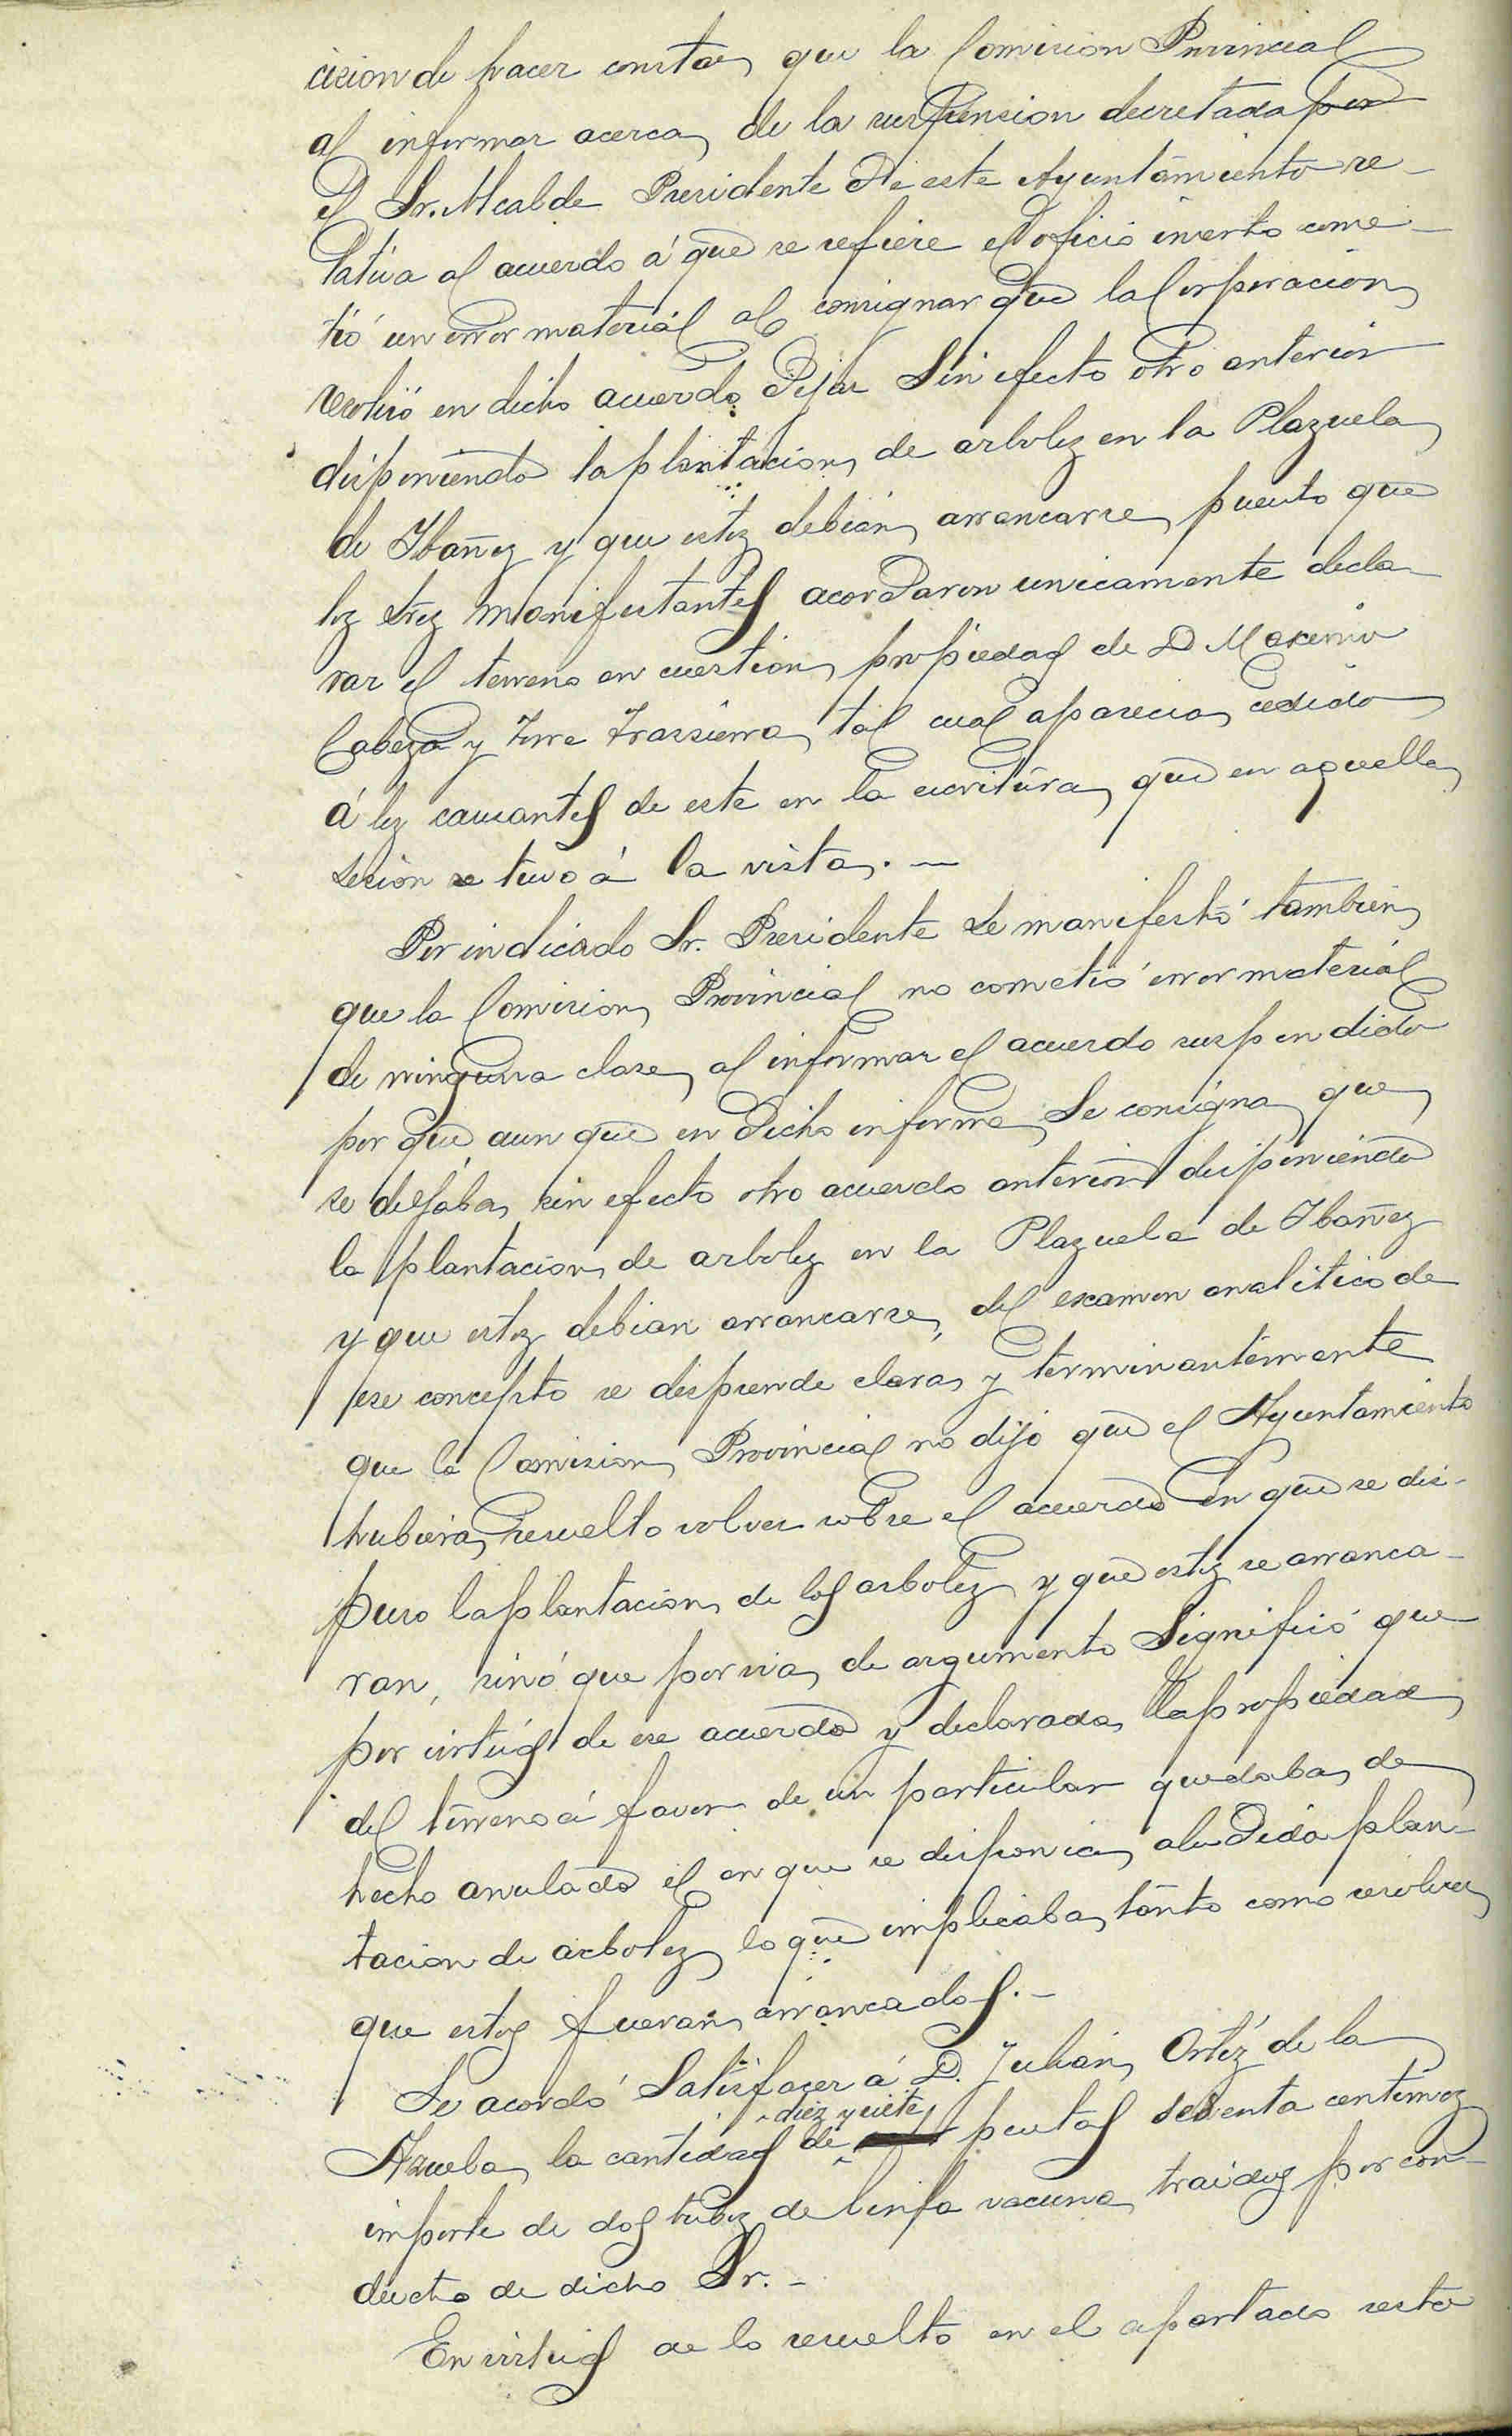 cision de hacer constar, que la Comision Provincial
al informar acerca, de la suspension decretada por
el Sr. Alcalde Presidente de este Ayuntamiento re-
lativa al acuerdo á que se refiere el oficio inserto come-
tió un error material al consignar que la Corporacion
resolvió en dicho acuerdo dejar sin efecto otro anterior
disponiendo la plantacion, de arboles en la Plazuela
de Ibañez y que estos debian, arrancarse, puesto que
los Sres manifestantes acordaron unicamente decla-
rar el terreno en cuestion, propiedad de D Maximino
Cabeza y Torre Trassierra, tal cual aparecia, cedido
á los causantes de este en la escritura, que en aquella
sesion se tuvo á la vista. -
Por indicado Sr. Presidente se manifestó tambien,
que la Comision, Provincial no cometió error material
de ninguna clase, al informar el acuerdo suspendido
por que aun que en dicho informe, se consigna, que
se dejaba, sin efecto otro acuerdo anterior disponiendo
la plantacion, de arboles en la Plazuela de Ibañez
y que estos debian arrancarse, del examen analitico de
ese concepto se desprende clara, y terminantemente
que la Comision, Provincial no dijo que el Ayuntamiento
hubiera, resuelto volver sobre el acuerdo en que se dis-
puso la plantacion, de los arboles y que estos se arranca-
ran, sinó que por via, de argumento significó que
por virtud de ese acuerdo y declarada, la propiedad
del terreno á favor de un particular quedaba, de
hecho anulado el en que se disponia, aludida plan-
tacion de arboles lo que implicaba, tanto como resolver
que estos fueran, arrancados. -
Se acordó satisfacer á D. Julian, Ortíz de la
diez y siete
Azuela, la cantidad de pesetas sesenta centimos
importe de dos tubos de linfa vacuna, traidos por con-
ducto de dicho Sr. -
En virtud de lo resuelto en el apartado sesto